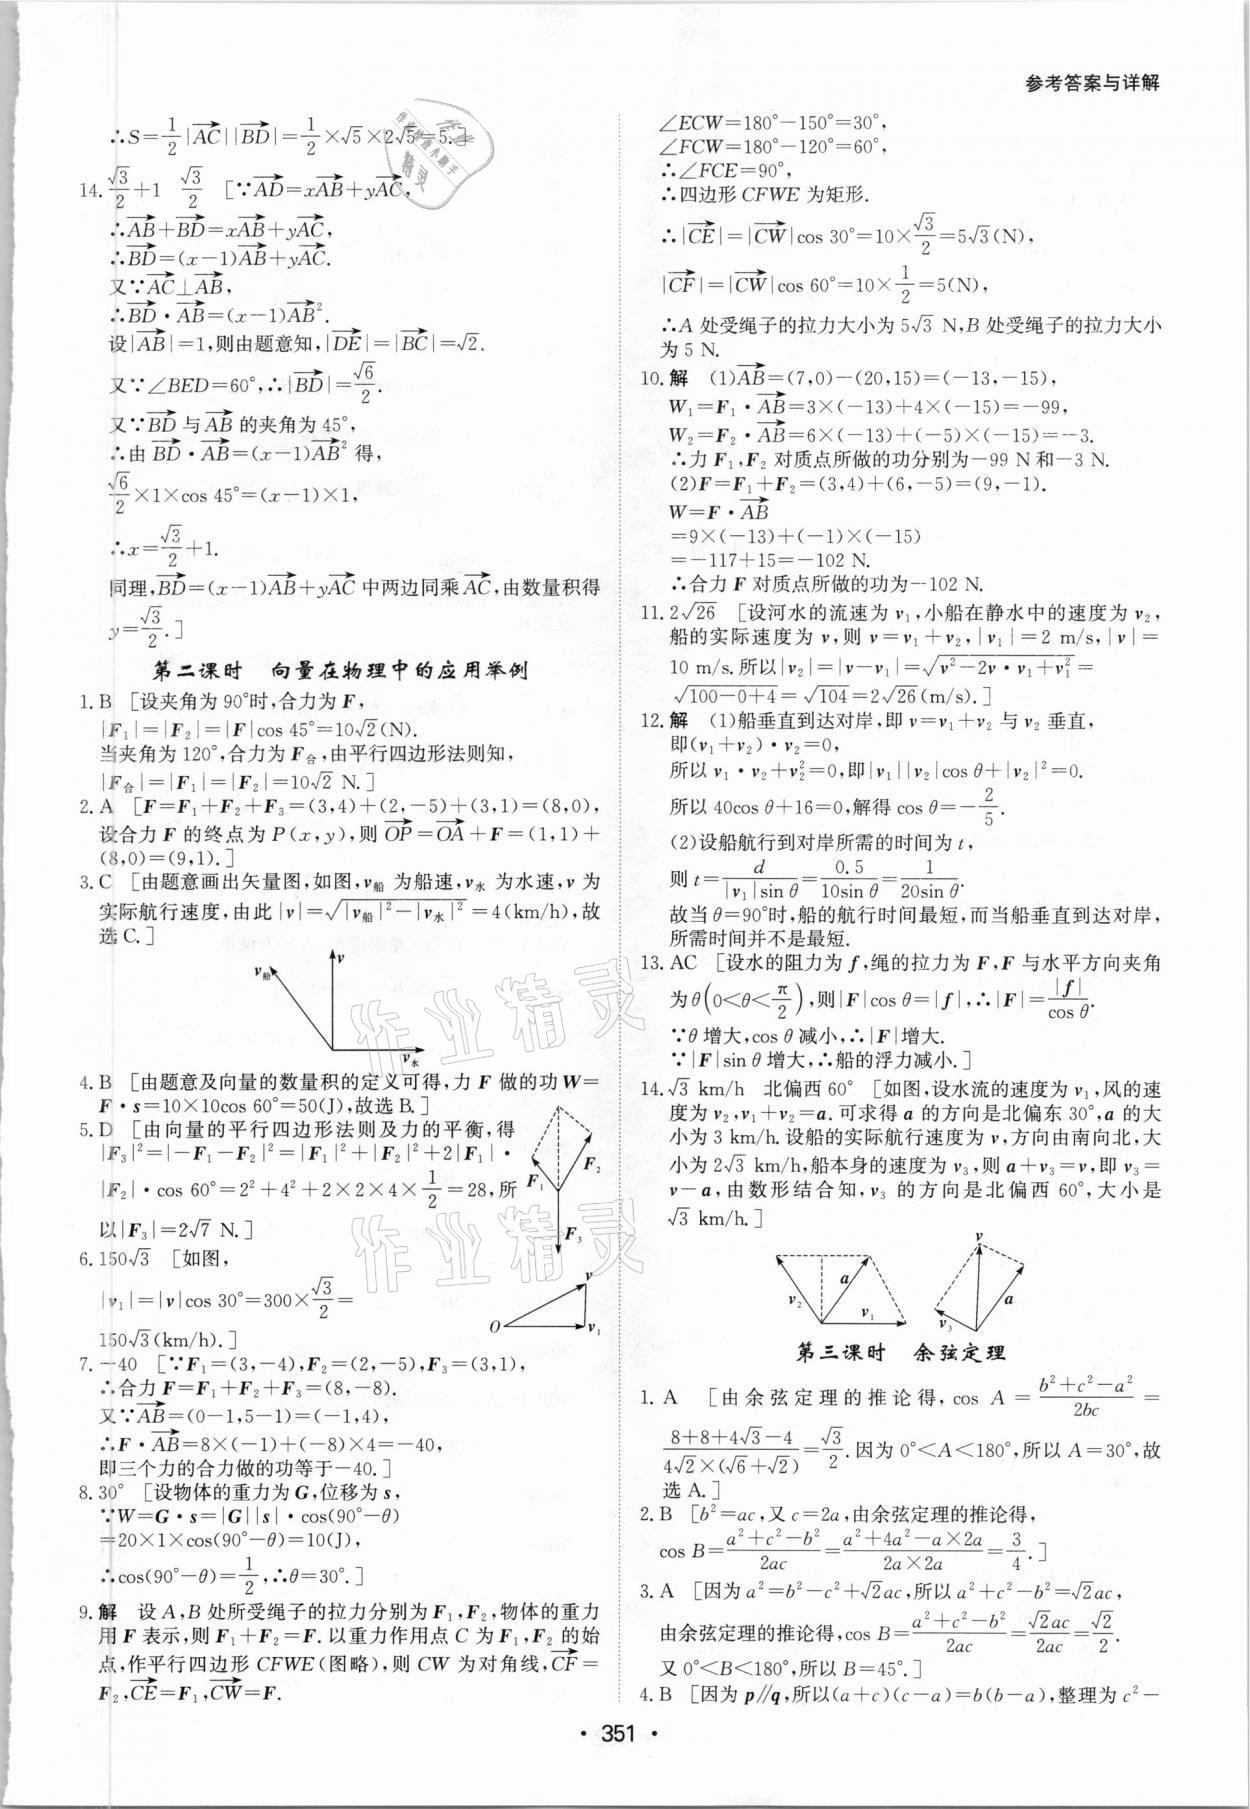 参考答案与详解
∴S=1/2|AC→||BD→|=1/2×√5×2√5=5.]
14.√3/2+1　√3/2　[∵AD→=xAB→+yAC→,
∴AB→+BD→=xAB→+yAC→,
∴BD→=(x-1)AB→+yAC→.
又∵AC→⊥AB→,
∴BD→·AB→=(x-1)AB→².
设|AB→|=1,则由题意知,|DE→|=|BC→|=√2.
又∵∠BED=60°,∴|BD→|=√6/2.
又∵BD→与AB→的夹角为45°,
∴由BD→·AB→=(x-1)AB→²得,
√6/2×1×cos 45°=(x-1)×1,
∴x=√3/2+1.
同理,BD→=(x-1)AB→+yAC→中两边同乘AC→,由数量积得
y=√3/2.]
第二课时　向量在物理中的应用举例
1.B　[设夹角为90°时,合力为F,
|F₁|=|F₂|=|F|cos 45°=10√2(N).
当夹角为120°,合力为F合,由平行四边形法则知,
|F合|=|F₁|=|F₂|=10√2 N.]
2.A　[F=F₁+F₂+F₃=(3,4)+(2,-5)+(3,1)=(8,0),
设合力F的终点为P(x,y),则OP→=OA→+F=(1,1)+
(8,0)=(9,1).]
3.C　[由题意画出矢量图,如图,v船为船速,v水为水速,v为
实际航行速度,由此|v|=√(|v船|²-|v水|²)=4(km/h),故
选C.]
v船
v
v水
4.B　[由题意及向量的数量积的定义可得,力F做的功W=
F·s=10×10cos 60°=50(J),故选B.]
5.D　[由向量的平行四边形法则及力的平衡,得
|F₃|²=|-F₁-F₂|²=|F₁|²+|F₂|²+2|F₁|·
|F₂|·cos 60°=2²+4²+2×2×4×1/2=28,所
以|F₃|=2√7 N.]
F₁
F₂
F₃
6.150√3　[如图,
|v₁|=|v|cos 30°=300×√3/2=
150√3(km/h).]
v
O
v₁
7.-40　[∵F₁=(3,-4),F₂=(2,-5),F₃=(3,1),
∴合力F=F₁+F₂+F₃=(8,-8).
又∵AB→=(0-1,5-1)=(-1,4),
∴F·AB→=8×(-1)+(-8)×4=-40,
即三个力的合力做的功等于-40.]
8.30°　[设物体的重力为G,位移为s,
∵W=G·s=|G||s|·cos(90°-θ)
=20×1×cos(90°-θ)=10(J),
∴cos(90°-θ)=1/2,∴θ=30°.]
9.解　设A,B处所受绳子的拉力分别为F₁,F₂,物体的重力
用F表示,则F₁+F₂=F.以重力作用点C为F₁,F₂的始
点,作平行四边形CFWE(图略),则CW为对角线,CF→=
F₂,CE→=F₁,CW→=F.
∠ECW=180°-150°=30°,
∠FCW=180°-120°=60°,
∴∠FCE=90°,
∴四边形CFWE为矩形.
∴|CE→|=|CW→|cos 30°=10×√3/2=5√3(N),
|CF→|=|CW→|cos 60°=10×1/2=5(N),
∴A处受绳子的拉力大小为5√3 N,B处受绳子的拉力大小
为5 N.
10.解　(1)AB→=(7,0)-(20,15)=(-13,-15),
W₁=F₁·AB→=3×(-13)+4×(-15)=-99,
W₂=F₂·AB→=6×(-13)+(-5)×(-15)=-3.
∴力F₁,F₂对质点所做的功分别为-99 N和-3 N.
(2)F=F₁+F₂=(3,4)+(6,-5)=(9,-1).
W=F·AB→
=9×(-13)+(-1)×(-15)
=-117+15=-102 N.
∴合力F对质点所做的功为-102 N.
11.2√26　[设河水的流速为v₁,小船在静水中的速度为v₂,
船的实际速度为v,则v=v₁+v₂,|v₁|=2 m/s,|v|=
10 m/s.所以|v₂|=|v-v₁|=√(v²-2v·v₁+v₁²)=
√(100-0+4)=√104=2√26(m/s).]
12.解　(1)船垂直到达对岸,即v=v₁+v₂与v₂垂直,
即(v₁+v₂)·v₂=0,
所以v₁·v₂+v₂²=0,即|v₁||v₂|cos θ+|v₂|²=0.
所以40cos θ+16=0,解得cos θ=-2/5.
(2)设船航行到对岸所需的时间为t,
则t=d/(|v₁|sin θ)=0.5/(10sin θ)=1/(20sin θ).
故当θ=90°时,船的航行时间最短,而当船垂直到达对岸,
所需时间并不是最短.
13.AC　[设水的阻力为f,绳的拉力为F,F与水平方向夹角
为θ(0<θ<π/2),则|F|cos θ=|f|,∴|F|=|f|/cos θ.
∵θ增大,cos θ减小,∴|F|增大.
∵|F|sin θ增大,∴船的浮力减小.]
14.√3 km/h　北偏西60°　[如图,设水流的速度为v₁,风的速
度为v₂,v₁+v₂=a.可求得a的方向是北偏东30°,a的大
小为3 km/h.设船的实际航行速度为v,方向由南向北,大
小为2√3 km/h,船本身的速度为v₃,则a+v₃=v,即v₃=
v-a,由数形结合知,v₃的方向是北偏西60°,大小是
√3 km/h.]
v₂
a
v₁
v
a
v₃
第三课时　余弦定理
1.A　[由余弦定理的推论得,cos A=(b²+c²-a²)/2bc=
(8+8+4√3-4)/(4√2×(√6+√2))=√3/2.因为0°<A<180°,所以A=30°,故
选A.]
2.B　[b²=ac,又c=2a,由余弦定理的推论得,
cos B=(a²+c²-b²)/2ac=(a²+4a²-a×2a)/(2a×2a)=3/4.]
3.A　[因为a²=b²-c²+√2ac,所以a²+c²-b²=√2ac,
由余弦定理的推论得,cos B=(a²+c²-b²)/2ac=√2ac/2ac=√2/2.
又0°<B<180°,所以B=45°.]
4.B　[因为p∥q,所以(a+c)(c-a)=b(b-a),整理为c²-
·351·
作业精灵
作业精灵
作业
作业检查小助手
精灵